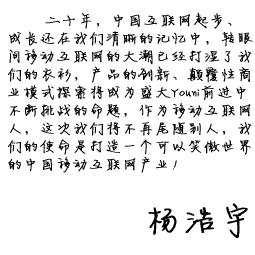 二十年，中国互联网起步、
成长还在我们清晰的记忆中，转眼
间移动互联网的大潮已经打湿了我
们的衣衫，产品的创新、颠覆性商
业模式探索将成为盛大Youni前进中
不断挑战的命题，作为移动互联网
人，这次我们将不再尾随别人，我
们的使命是打造一个可以笑傲世界
的中国移动互联网产业！
杨浩宇